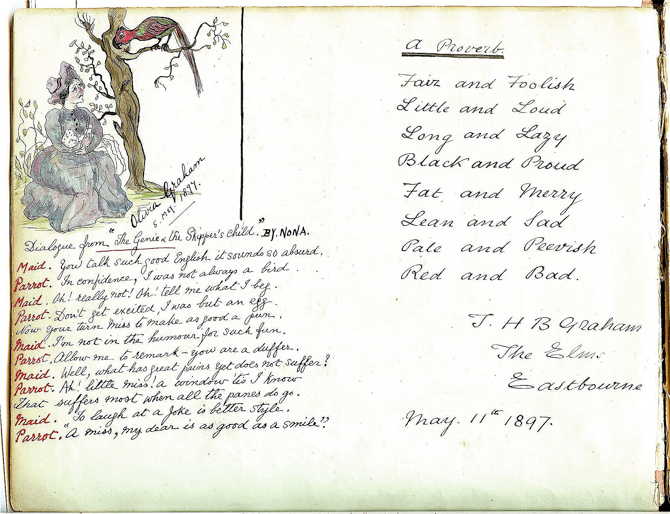 Olivia Graham
5. May. 1897.
Dialogue from "The Genie & the Skipper's Child." BY. NONA.
Maid. You talk such good English it sounds so absurd.
Parrot. In confidence, I was not always a bird.
Maid. Oh! really not! Oh! tell me what I beg.
Parrot. Don't get excited, I was but an egg.
Now your turn Miss to make as good a pun.
Maid. I'm not in the humour for such fun.
Parrot. Allow me to remark - you are a duffer.
Maid. Well, what has great pains yet does not suffer?
Parrot. Ah! little miss! a window 'tis I know
That suffers most when all the panes do go.
Maid. "To laugh at a joke is better style.
Parrot. "A miss, my dear is as good as a smile"!
A Proverb.
Fair and Foolish
Little and Loud
Long and Lazy
Black and Proud
Fat and Merry
Lean and Sad
Pale and Peevish
Red and Bad.
T. H B Graham
The Elms
Eastbourne
May. 11th 1897.